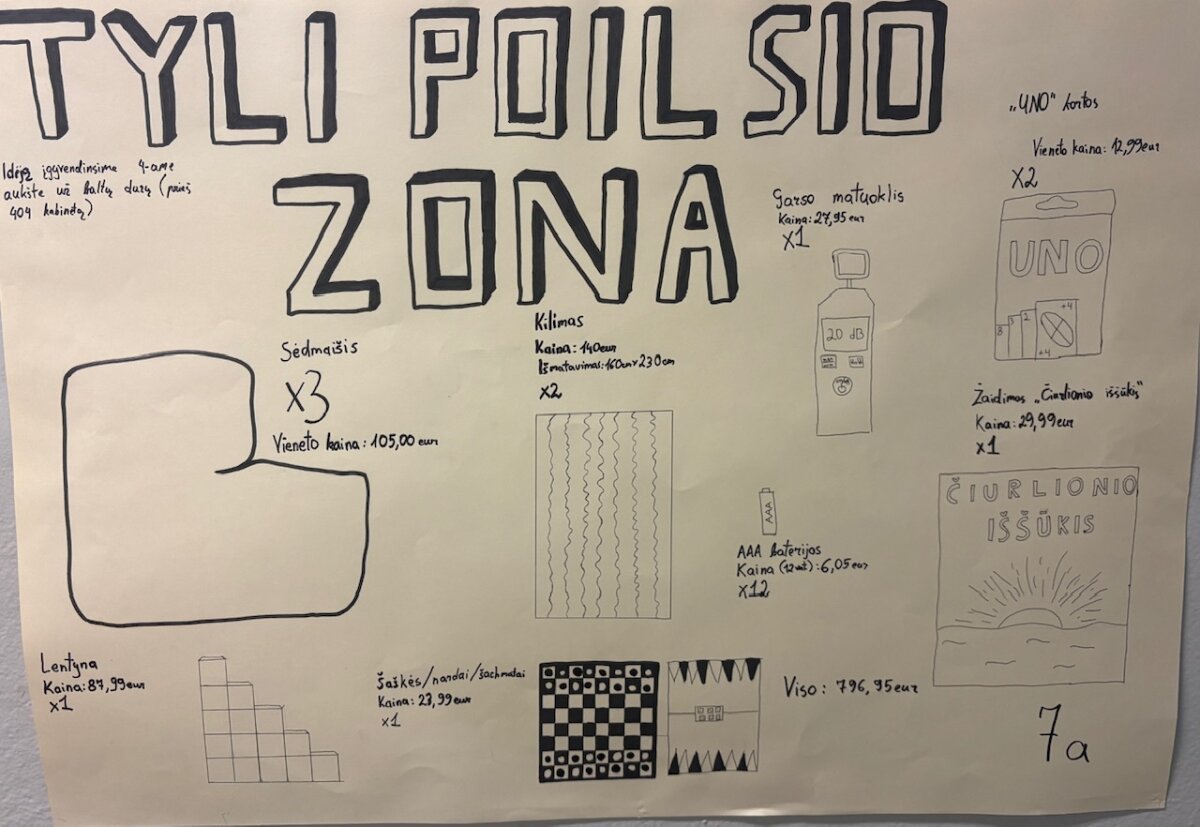 TYLI POILSIO
ZONA
Idėją įgyvendinsime 4-ame
aukšte už baltų durų (prieš
404 kabinetą)
Sėdmaišis
X3
Vieneto kaina: 105,00 eur
Kilimas
Kaina: 140eur
Išmatavimas: 160cm x 230cm
X2
Garso matuoklis
Kaina: 27,95 eur
X1
20 dB
„UNO" kortos
Vieneto kaina: 12,99eur
X2
UNO
8 3 2 +4
+4
Žaidimas „Čiurlionio iššūkis"
Kaina: 29,99eur
x1
ČIURLIONIO
IŠŠŪKIS
AAA
AAA baterijos
Kaina (12vnt): 6,05eur
X12
Lentyna
Kaina: 87,99eur
x1
Šaškės/nardai/šachmatai
Kaina: 23,99eur
x1
Viso: 796,95eur
7a